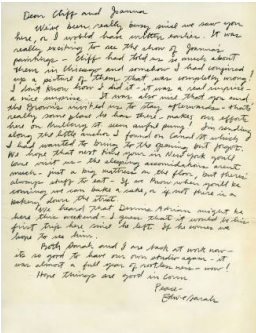 Dear Cliff and Joanna
We've been really busy since we saw you
here, or I would have written earlier. It was
really exciting to see the show of Joanna's
paintings - Cliff had told us so much about
them in Chicago and somehow I had conjured
up a picture of them that was completely wrong!
I don't know how I did it - it was a real surprise -
a nice surprise. It was also nice that you and
the Browns invited us to stay afterwards - that's
really some place he has there - makes our efforts
here on Mulberry St seem awful puny. I'm sending
along the little anchor I found on Canal St which
I had wanted to bring to the opening but forgot.
We hope that next time you're in New York you'll
come visit us - the sleeping accommodations aren't
much - just a big mattress on the floor, but there's
always stuff to eat. If we know when you'll be
coming we can bake a cake, or if not there is a
bakery down the street.
I've heard that Dennis Adrian might be
here this weekend - I guess that it would be his
first trip here since he left. If he comes we
hope to see him.
Both Sarah and I are back at work now -
its so good to have our own studios again - it
was almost a full year of restlessness - wow!
Hope things are good in Conn
Peace -
Ed & Sarah